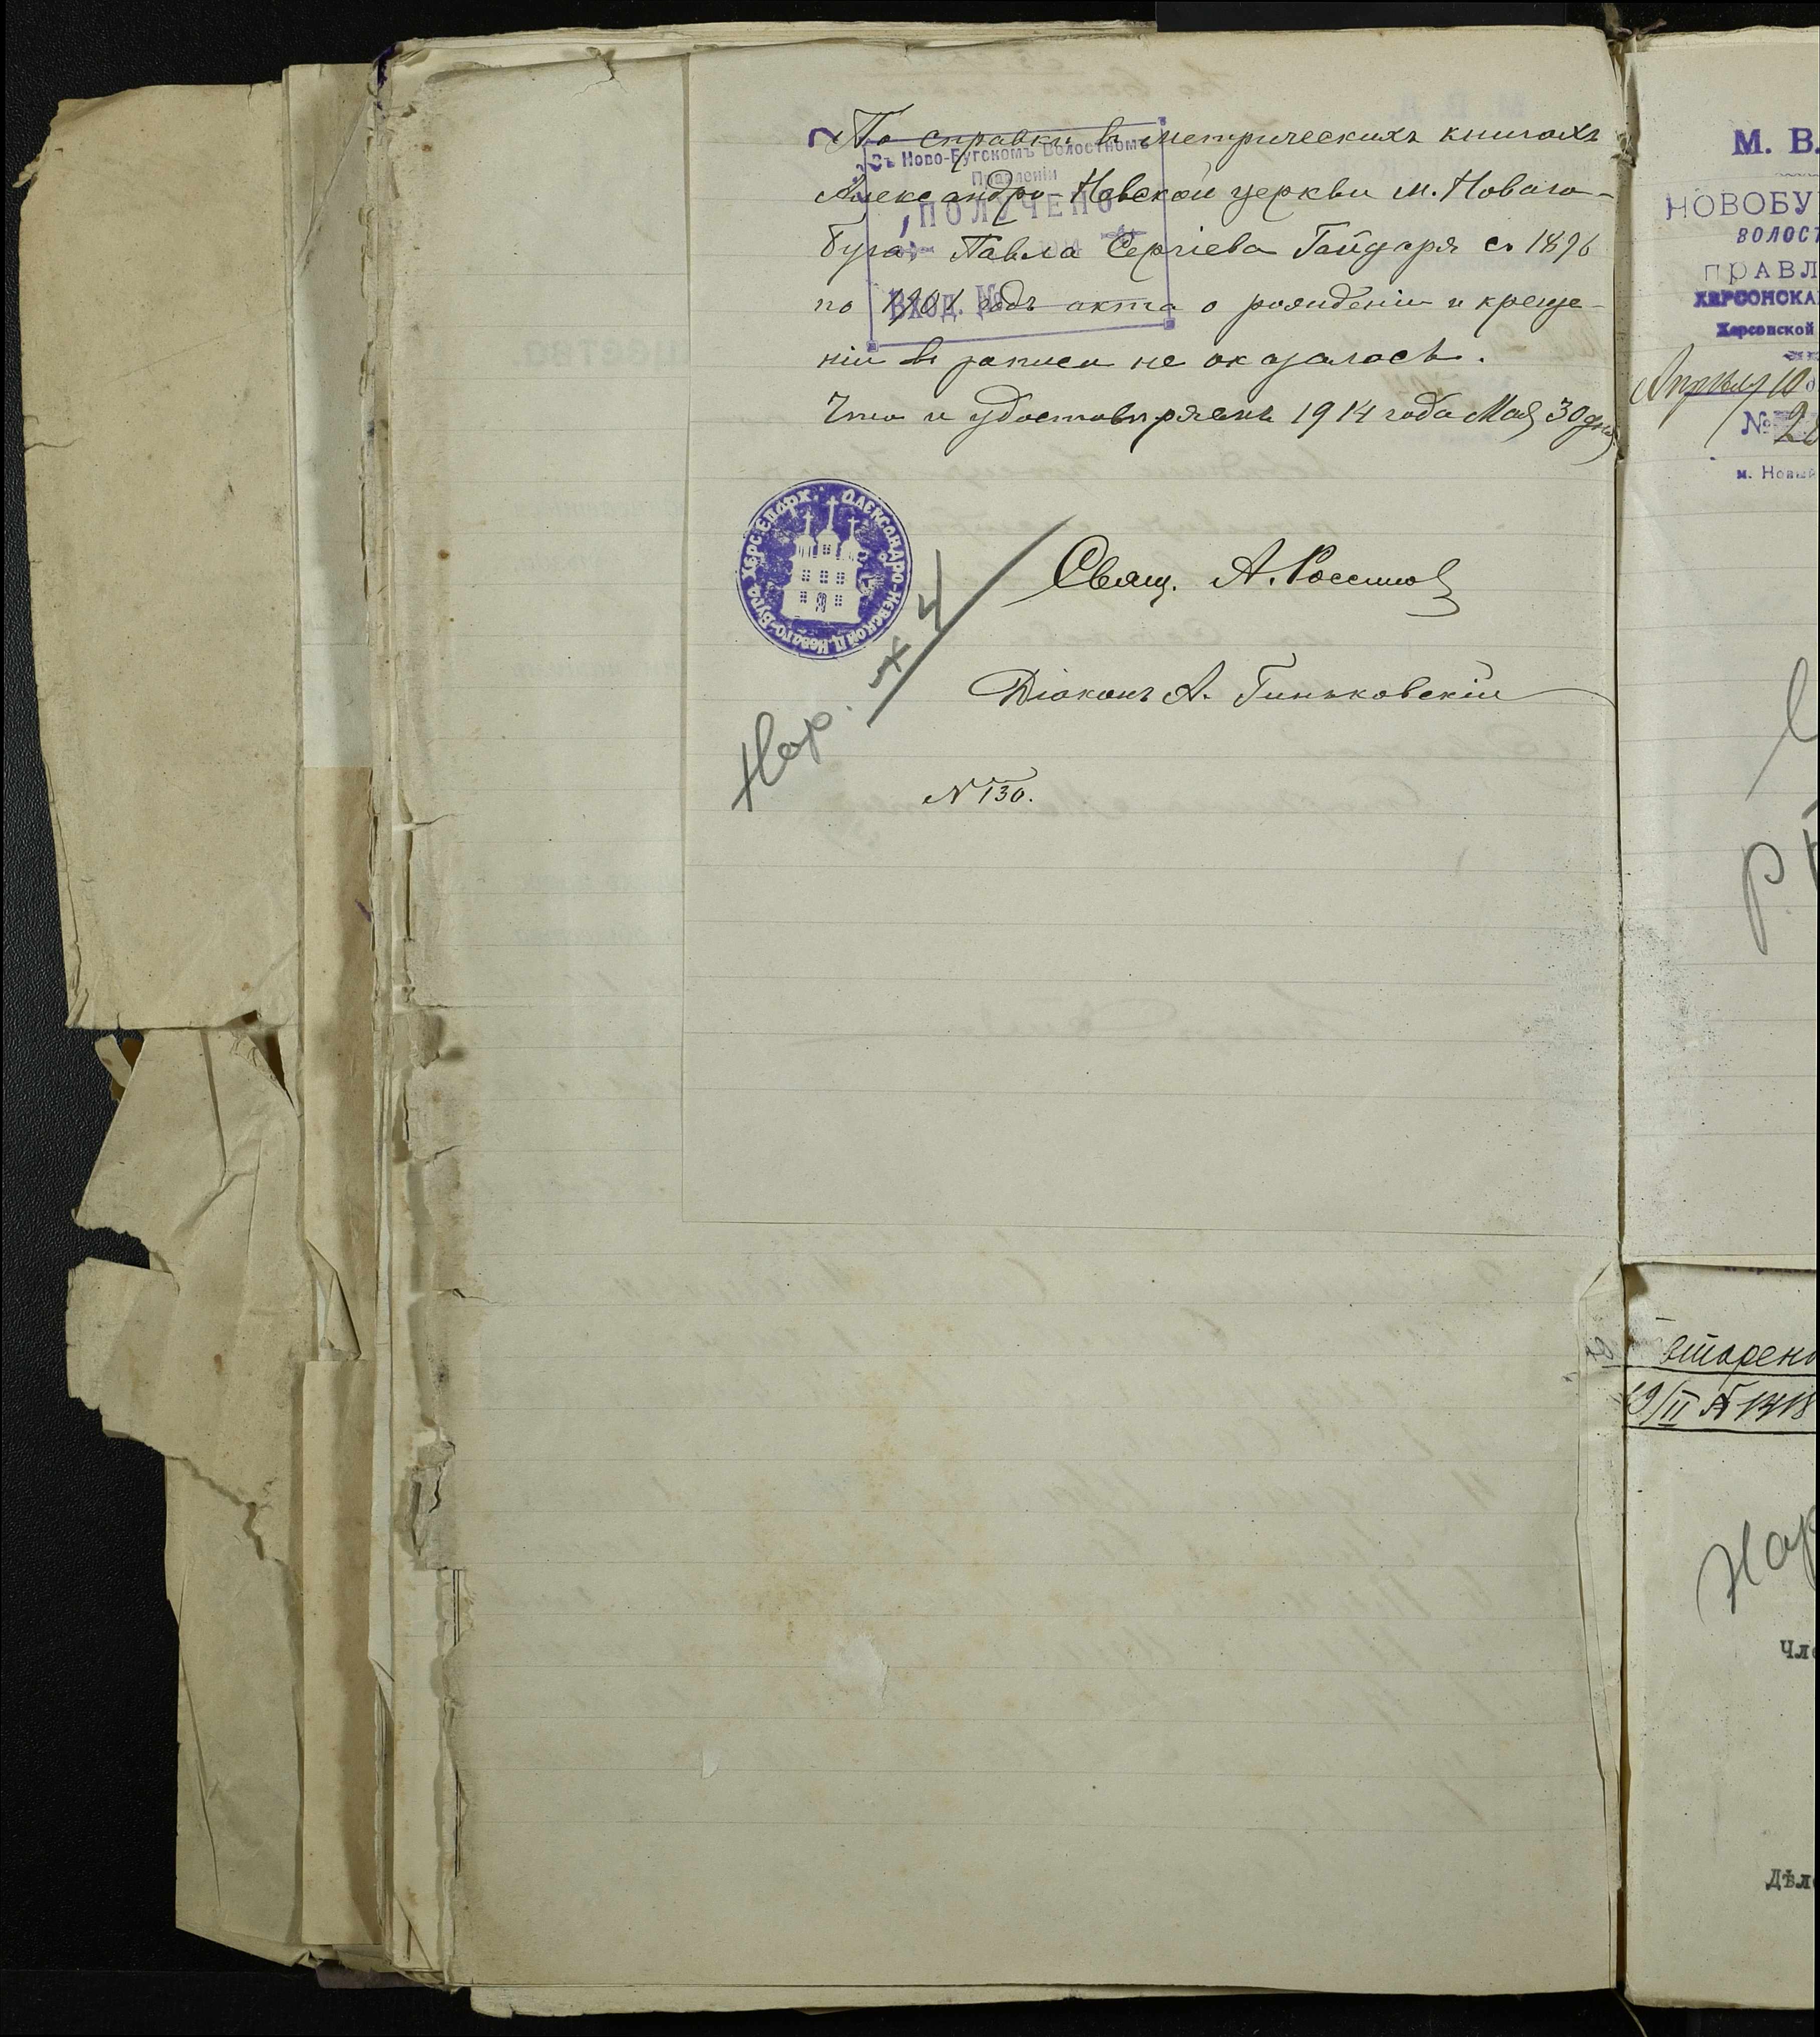 По справки въ метрическихъ книгахъ
Александро-Невской церкви м. Новаго-
Буга, Павла Сергіева Гайдаря съ 1896
по 1901 годъ акта о рожденіи и креще-
ніи въ записи не оказалось.
Что и удостовѣряемъ 1914 года Мая 30 дня.
Въ Ново-Бугскомъ Волостномъ
Правленіи
ПОЛУЧЕНО
ВХОД. №
ХЕРС. ЕПАРХ. АЛЕКСАНДРО-НЕВСКОЙ Ц. НОВАГО-БУГА
Свящ. А.
Діаконъ А. Гиньковскій
Нар.
N 130.
М. В.
НОВОБУ
ВОЛОСТ
ПРАВЛ
ХЕРСОНСКА
Херсонской
Апрѣля 10
№ 28
м. Новый
вторено
19/II № 1718
Нар
Чле
Дѣло